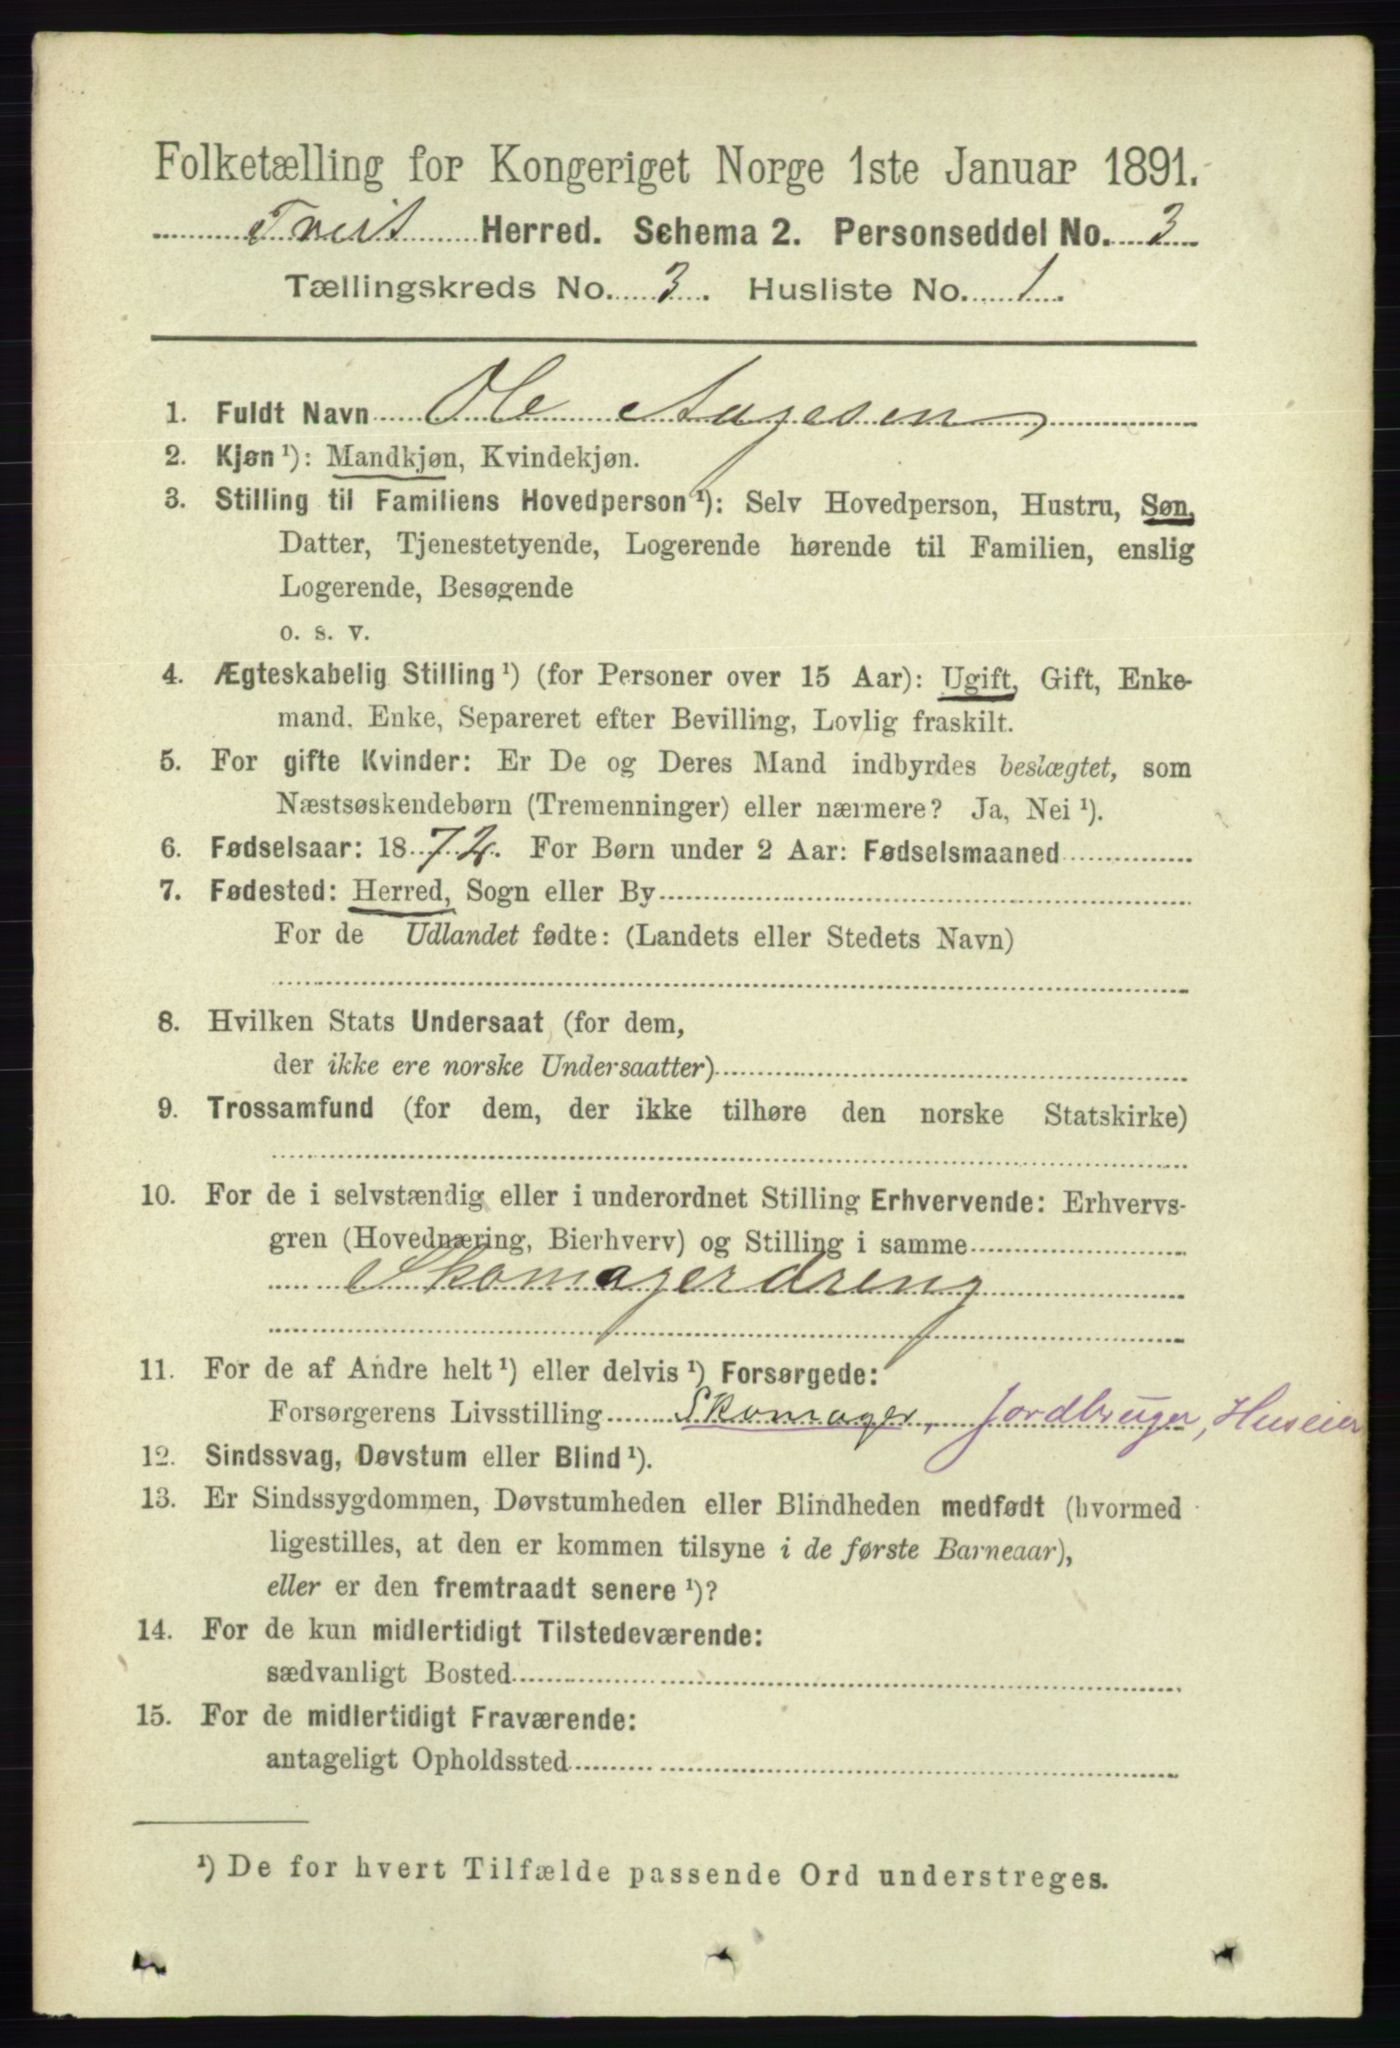 Folketælling for Kongeriget Norge 1ste Januar 1891.
Tveit Herred. Schema 2. Personseddel No. 3
Tællingskreds No. 3. Husliste No. 1.
1. Fuldt Navn Ole Aagesen
2. Kjøn ¹): Mandkjøn, Kvindekjøn.
3. Stilling til Familiens Hovedperson ¹): Selv Hovedperson, Hustru, Søn,
Datter, Tjenestetyende, Logerende hørende til Familien, enslig
Logerende, Besøgende
o. s. v.
4. Ægteskabelig Stilling ¹) (for Personer over 15 Aar): Ugift, Gift, Enke-
mand, Enke, Separeret efter Bevilling, Lovlig fraskilt.
5. For gifte Kvinder: Er De og Deres Mand indbyrdes beslægtet, som
Næstsøskendebørn (Tremenninger) eller nærmere? Ja, Nei ¹).
6. Fødselsaar: 1872. For Børn under 2 Aar: Fødselsmaaned
7. Fødested: Herred, Sogn eller By
For de Udlandet fødte: (Landets eller Stedets Navn)
8. Hvilken Stats Undersaat (for dem,
der ikke ere norske Undersaatter)
9. Trossamfund (for dem, der ikke tilhøre den norske Statskirke)
10. For de i selvstændig eller i underordnet Stilling Erhvervende: Erhvervs-
gren (Hovednæring, Bierhverv) og Stilling i samme
Skomagerdreng
11. For de af Andre helt ¹) eller delvis ¹) Forsørgede:
Forsørgerens Livsstilling Skomager, Jordbruger, Huseier
12. Sindssvag, Døvstum eller Blind ¹).
13. Er Sindssygdommen, Døvstumheden eller Blindheden medfødt (hvormed
ligestilles, at den er kommen tilsyne i de første Barneaar),
eller er den fremtraadt senere ¹)?
14. For de kun midlertidigt Tilstedeværende:
sædvanligt Bosted
15. For de midlertidigt Fraværende:
antageligt Opholdssted
¹) De for hvert Tilfælde passende Ord understreges.